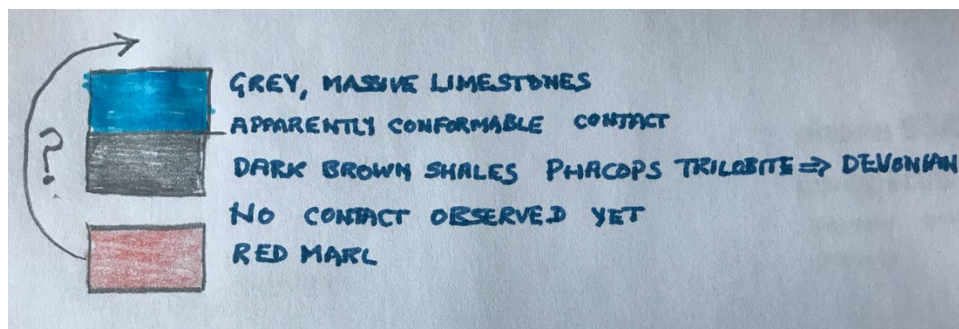 ?
GREY, MASSIVE LIMESTONES
APPARENTLY CONFORMABLE CONTACT
DARK BROWN SHALES PHACOPS TRILOBITE => DEVONIAN
NO CONTACT OBSERVED YET
RED MARL